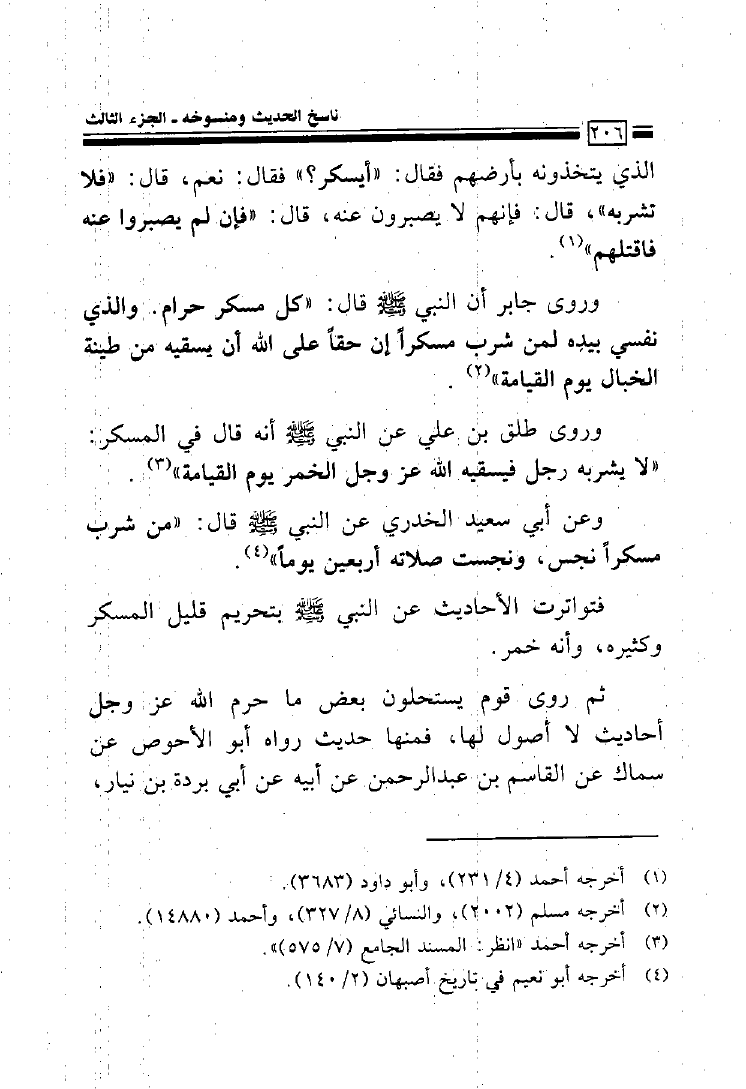 ناسخ الحديث ومنسوخه - الجزء الثالث
٢٠٦
الذي يتخذونه بأرضهم فقال: «أيسكر؟» فقال: نعم، قال: «فلا
تشربه»، قال: فإنهم لا يصبرون عنه، قال: «فإن لم يصبروا عنه
فاقتلهم»(١).
وروى جابر أن النبي ﷺ قال: «كل مسكر حرام. والذي
نفسي بيده لمن شرب مسكراً إن حقاً على الله أن يسقيه من طينة
الخبال يوم القيامة»(٢).
وروى طلق بن علي عن النبي ﷺ أنه قال في المسكر:
«لا يشربه رجل فيسقيه الله عز وجل الخمر يوم القيامة»(٣).
وعن أبي سعيد الخدري عن النبي ﷺ قال: «من شرب
مسكراً نجس، ونجست صلاته أربعين يوماً»(٤).
فتواترت الأحاديث عن النبي ﷺ بتحريم قليل المسكر
وكثيره، وأنه خمر.
ثم روى قوم يستحلون بعض ما حرم الله عز وجل
أحاديث لا أصول لها، فمنها حديث رواه أبو الأحوص عن
سماك عن القاسم بن عبدالرحمن عن أبيه عن أبي بردة بن نيار،
(١) أخرجه أحمد (٤/ ٢٣١)، وأبو داود (٣٦٨٣).
(٢) أخرجه مسلم (٢٠٠٢)، والنسائي (٨/ ٣٢٧)، وأحمد (١٤٨٨٠).
(٣) أخرجه أحمد «انظر: المسند الجامع (٧/ ٥٧٥)».
(٤) أخرجه أبو نعيم في تاريخ أصبهان (٢/ ١٤٠).